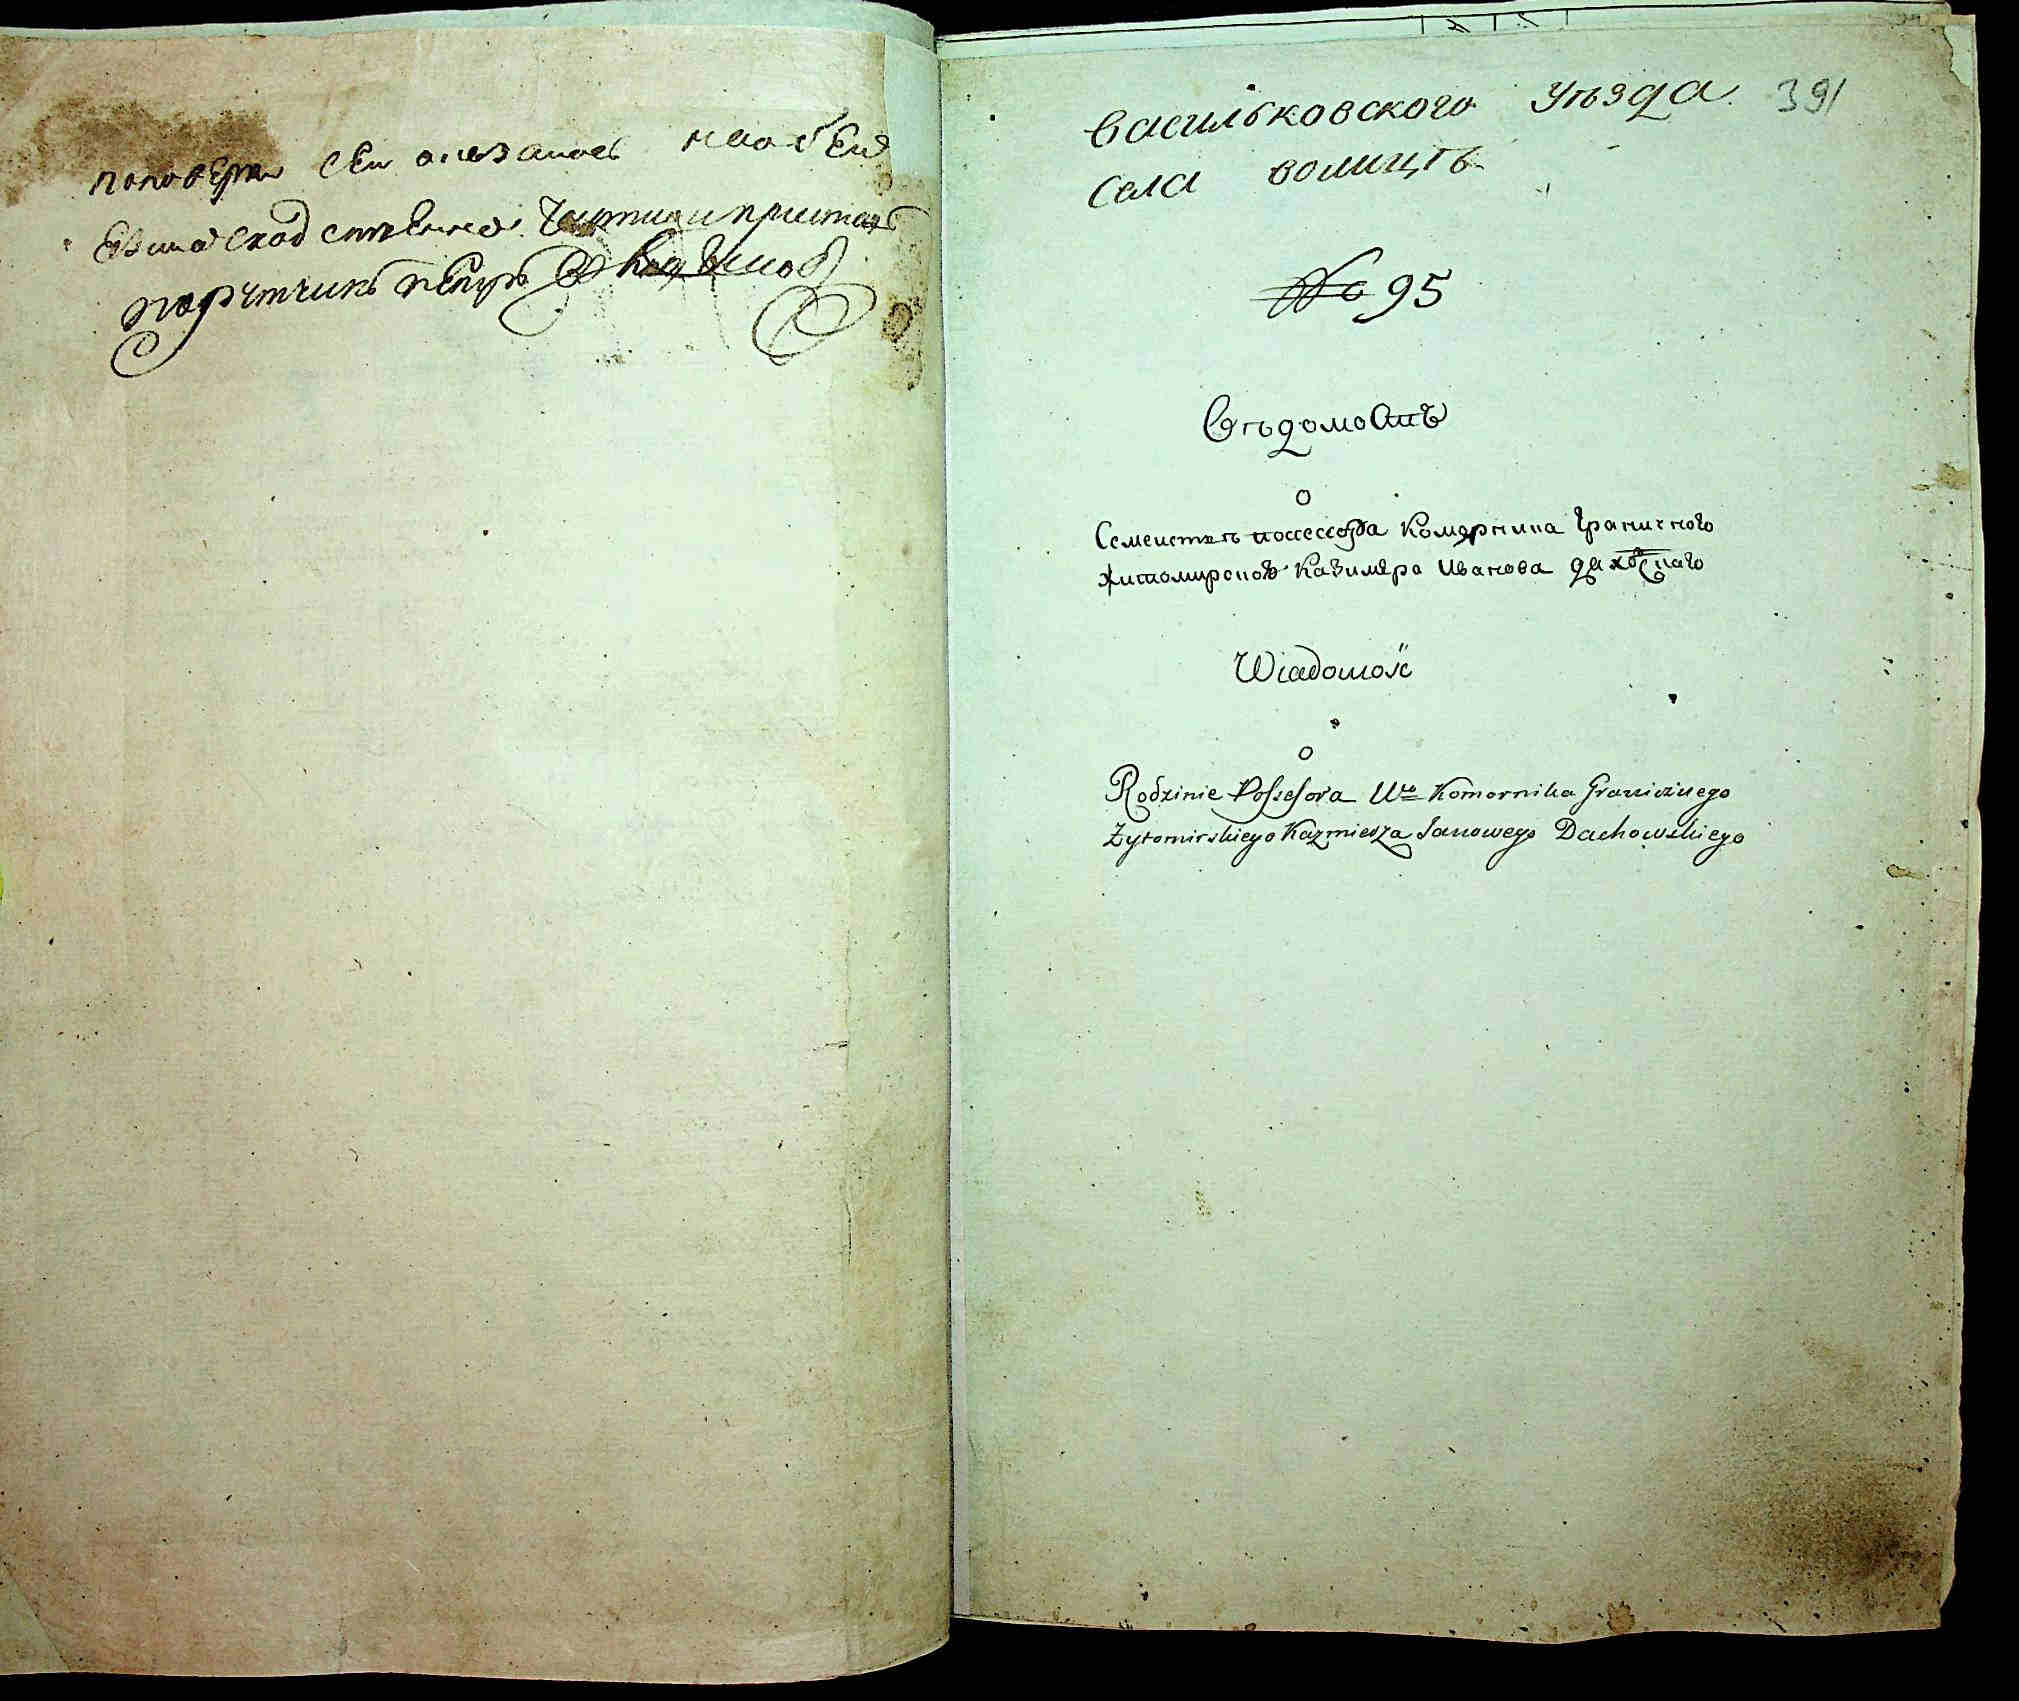 поповерки сей оказалось
сходственно Частный приставъ
порутчикъ Петръ
Васильковского Уѣзда 391
села волицѣ
№ 95
Вѣдомость
о
Семействѣ поссессора Коморника Граничного
Житомирского Казимѣра Иванова Даховскаго
Wiadomość
o
Rodzinie Possesora Wo Komornika Granicznego
Żytomirskiego Kazmierza Janowego Dachowskiego